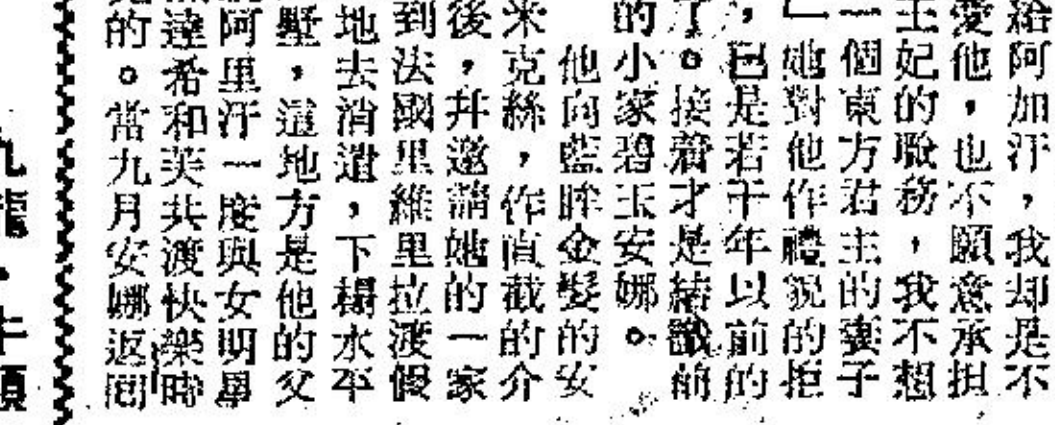 給阿加汗,我却是不
愛他,也不願意承担
王妃的職務,我不想
一個東方君主的妻子
」她對他作禮貌的拒
,已是若干年以前的
了。接着才是結識前
的小家碧玉安娜。
他向藍眸金髮的安
米克絲,作直截的介
後,并邀請她的一家
到法國里維里拉渡假
地去消遣,下榻水平
墅,這地方是他的父
阿里汗一度與女明星
達希和芙共渡快樂時
的。當九月安娜返
九龍・牛頭